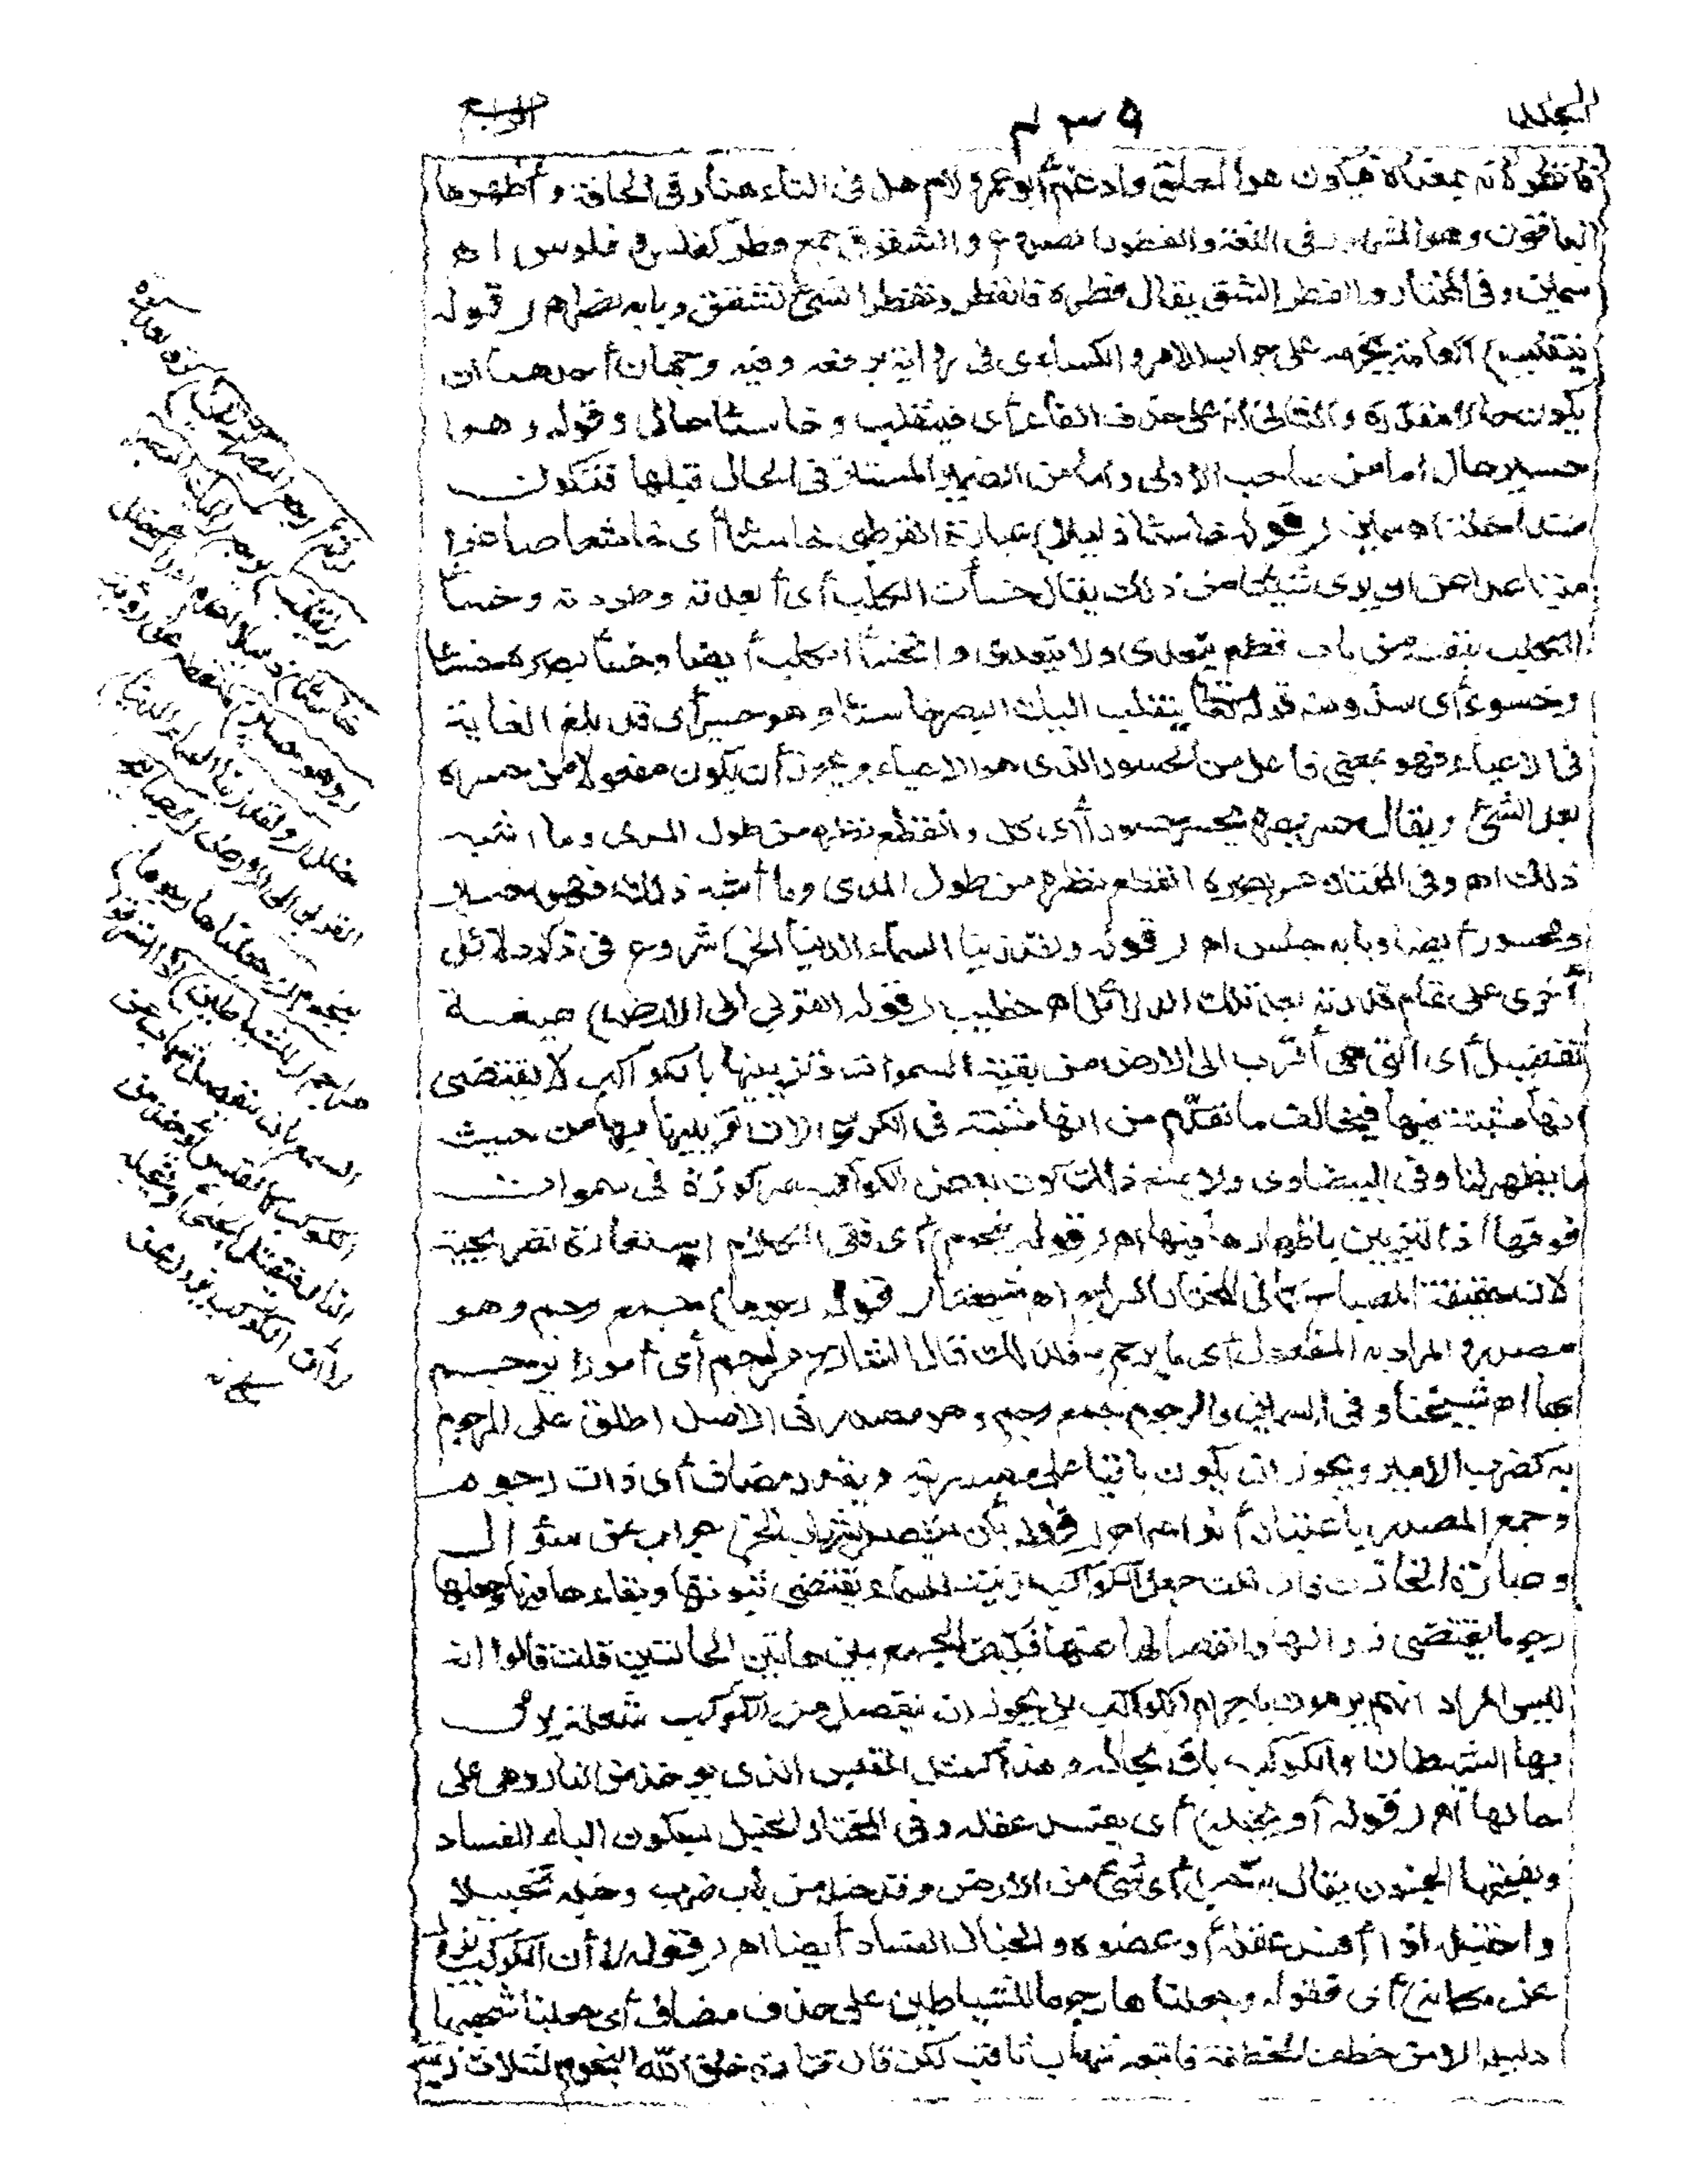 المجلد
٤٣٩
الرابع
فانظر لانه بمعناه فيكون هو المعلق وادغم أبو عمرو لام هل في التاء هنا وفي الحاقة وأظهرها
الباقون وهو المشهور في اللغة والفطور الصدوع والشقوق جمع فطر كفلس وفلوس اه
سمين وفي المختار والفطر الشق يقال فطره فانفطر وتفطر الشئ تشقق وبابه نصر اه (قوله
ينقلب) العامة بجزمه على جواب الامر والكسائي في رواية برفعه وفيه وجهان أحدهما أن
يكون حالا مقدرة والثاني انه على حذف الفاء أي فينقلب وخاسئا حال وقوله وهو
حسير حال اما من صاحب الاولى واما من الضمير المستتر في الحال قبلها فتكون
متداخلة اه سمين (قوله خاسئا ذليلا) عبارة القرطبي خاسئا أي خاشعا صاغرا
متباعدا عن ان يرى شيئا من ذلك يقال خسأت الكلب أي أبعدته وطردته وخسأ
الكلب بنفسه من باب قطع يتعدى ولا يتعدى وانخسأ الكلب أيضا وخسأ بصره خسئا
وخسوءا أي سدر ومنه قوله تعالى ينقلب اليك البصر خاسئا وهو حسير أي قد بلغ الغاية
في الاعياء فهو بمعنى فاعل من الحسور الذي هو الاعياء ويجوز أن يكون مفعولا من حسره
بعد الشئ ويقال حسر بصره يحسر حسورا أي كل وانقطع نظره من طول المدى وما اشبه
ذلك اه وفي المختار حسر بصره انقطع نظره من طول المدى وما أشبه ذلك فهو حسير
ومحسور أيضا وبابه جلس اه (قوله ولقد زينا السماء الدنيا الخ) شروع في ذكر دلائل
أخرى على تمام قدرته بعد تلك الدلائل اه خطيب (قوله القربى الى الارض) صيغة
تفضيل أي التي هي أقرب الى الارض من بقية السموات وتزيينها بالكواكب لا يقتضي
انها مثبتة فيها فيخالف ما تقدم من انها مثبتة في الكرسي لان تزيينها بها من حيث
ما يظهر لنا وفي البيضاوي ولا يمنع ذلك كون بعض الكواكب مركوزة في سموات
فوقها اذ التزيين باظهارها فيها اه (قوله بنجوم) أي ففي الكلام استعارة تصريحية
لان حقيقة المصباح كما في المختار السراج اه شيخنا (قوله رجوما) جمع رجم وهو
مصدر والمراد به المفعول أي ما يرجم به فلذلك قال الشارح مراجم أي أمورا يرجم
بها اه شيخنا وفي السمين والرجوم جمع رجم وهو مصدر في الاصل اطلق على المرجوم
به كضرب الامير ويجوز ان يكون باقيا على مصدريته ويقدر مضاف أي ذات رجوم
وجمع المصدر باعتبار أنواعه اه (قوله بأن ينفصل شهاب الخ) جواب عن سؤال
وعبارة الخازن فان قلت جعل الكواكب زينة للسماء يقتضي ثبوتها وبقاءها فيها وجعلها
رجوما يقتضي زوالها وانفصالها عنها فكيف الجمع بين هاتين الحالتين قلت قالوا انه
ليس المراد انهم يرمون باجرام الكواكب بل يجوز ان ينفصل من الكوكب شعلة يرمى
بها الشيطان والكوكب باق بحاله وهذا كمثل القبس الذي يؤخذ من النار وهي على
حالها اه (قوله أو يخبله) أي يفسد عقله وفي المختار الخبل بسكون الباء الفساد
وبفتحها الجنون يقال به خبل أي شئ من الارض وقد خبله من باب ضرب وخبله تخبيلا
واختبله اذا أفسد عقله أو عضوه والخبال الفساد أيضا اه (قوله لا أن الكوكب يزول
عن مكانه) أي فقوله وجعلناها رجوما للشياطين على حذف مضاف أي جعلنا شهبها
دليله الا من خطف الخطفة فاتبعه شهاب ثاقب لكن قال قتادة خلق الله النجوم لثلاث زينة
كرة بعد كرة
(ينقلب) يرجع (اليك البصر
خاسئا) ذليلا
(وهو حسير) منقطع عن رؤية
خلل (ولقد زينا السماء الدنيا)
القربى الى الارض (بمصابيح)
بنجوم (وجعلناها رجوما)
مراجم (للشياطين) اذا استرقوا
السمع بأن ينفصل شهاب عن
الكوكب كالقبس يؤخذ من
النار فيقتل الجني أو يخبله
لا أن الكوكب يزول عن
مكانه